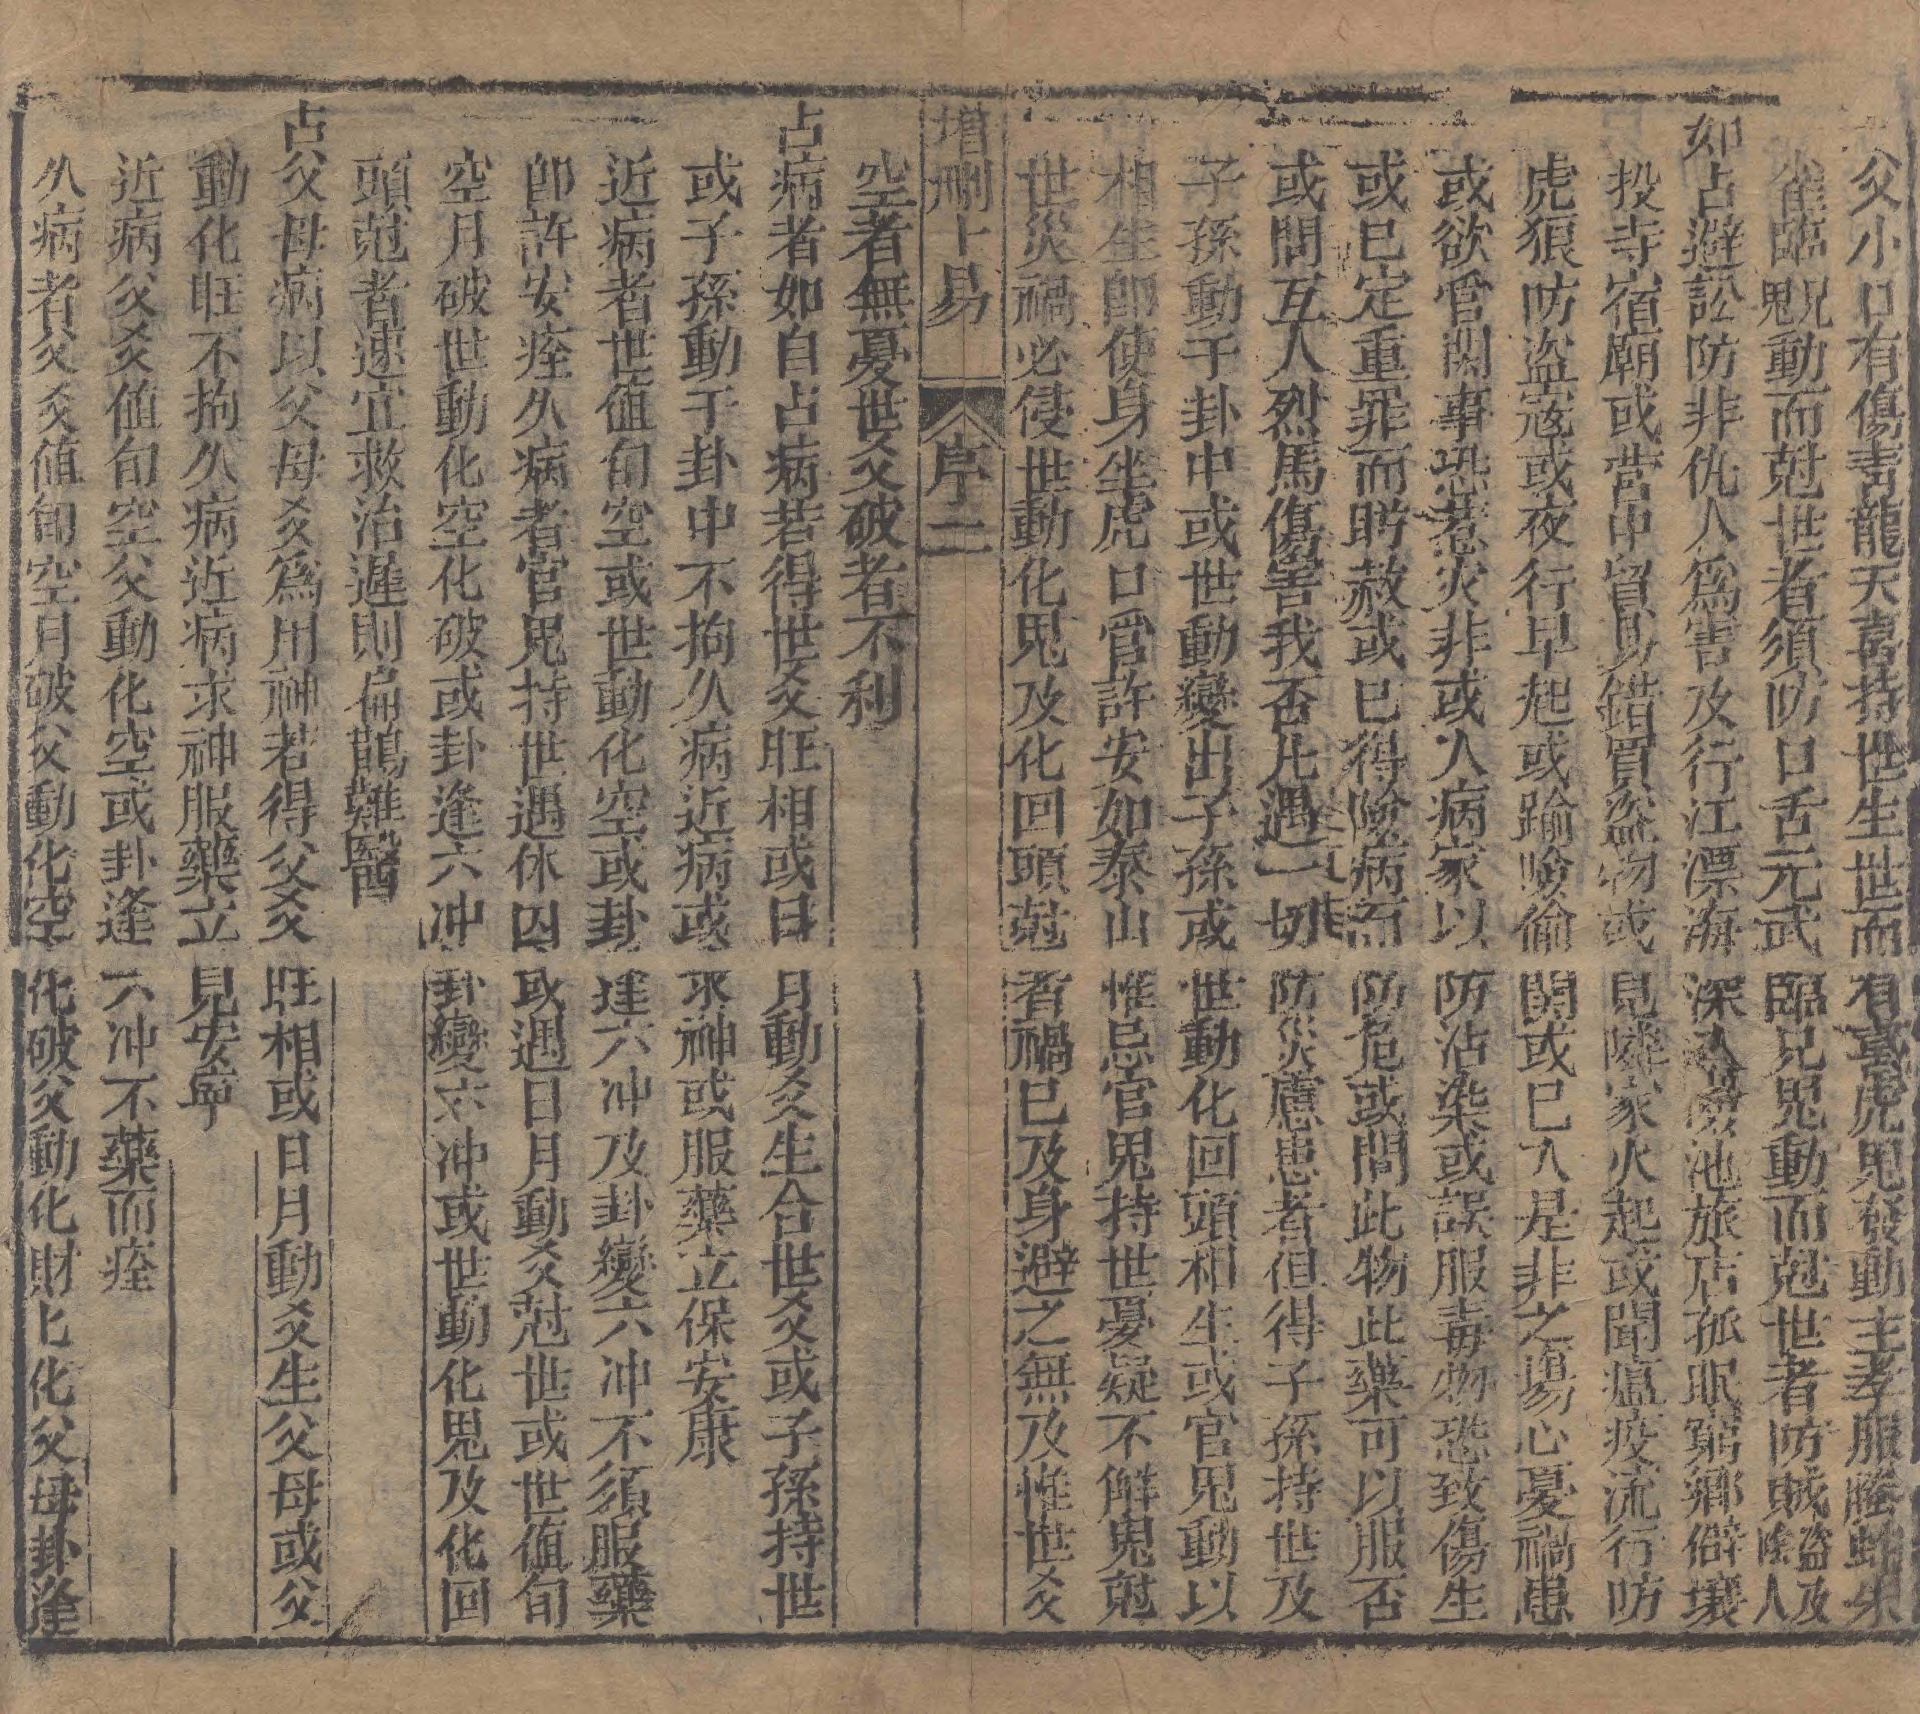 父小口有傷青龍天喜持世生世而有喜虎鬼發動主孝服螣蛇朱
雀臨兄鬼動而尅世者須防口舌元武臨兄鬼動而尅世者防賊盜及陰人
如占避訟防非仇人為害及行江漂海深入池旅店孤眠窮鄉僻壤
投寺宿廟或營中貿易錯買盜物或見隣家火起或聞瘟疫流行防
虎狼防盜寇或夜行早起或踰險偷關或已入是非之場心憂禍患
或欲管閑事恐惹火非或入病家以防沾染或誤服毒物恐致傷生
或已定重罪而盼赦或已得險病而防危或問此物此藥可以服否
或問互人烈馬傷害我否凡遇一切防災慮患者但得子孫持世及
子孫動于卦中或世動變出子孫或世動化回頭相生或官鬼動以
相生即使身坐虎口管許安如泰山惟忌官鬼持世憂疑不解鬼尅
世災禍必侵世動化鬼及化回頭尅者禍已及身避之無及惟世爻
增刪卜易 序 二
空者無憂世爻破者不利
占病者如自占病若得世爻旺相或日月動爻生合世爻或子孫持世
或子孫動于卦中不拘久病近病或求神或服藥立保安康
近病者世值旬空或世動化空或卦逢六冲及卦變六冲不須服藥
即許安痊久病者官鬼持世遇休囚或遇日月動爻尅世或世值旬
空月破世動化空化破或卦逢六冲卦變六冲或世動化鬼及化回
頭尅者速宜救治遲則扁鵲難醫
占父母病以父母爻為用神若得父爻旺相或日月動爻生父母或父
動化旺不拘久病近病求神服藥立見安寧
近病父爻值旬空父動化空或卦逢六冲不藥而痊
久病者父爻值旬空月破父動化空化破父動化財化父母卦逢